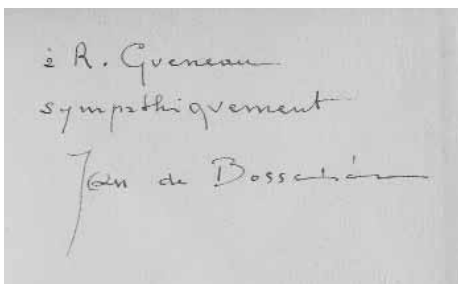 à R. Gueneau
sympathiquement
Jean de Bosschère